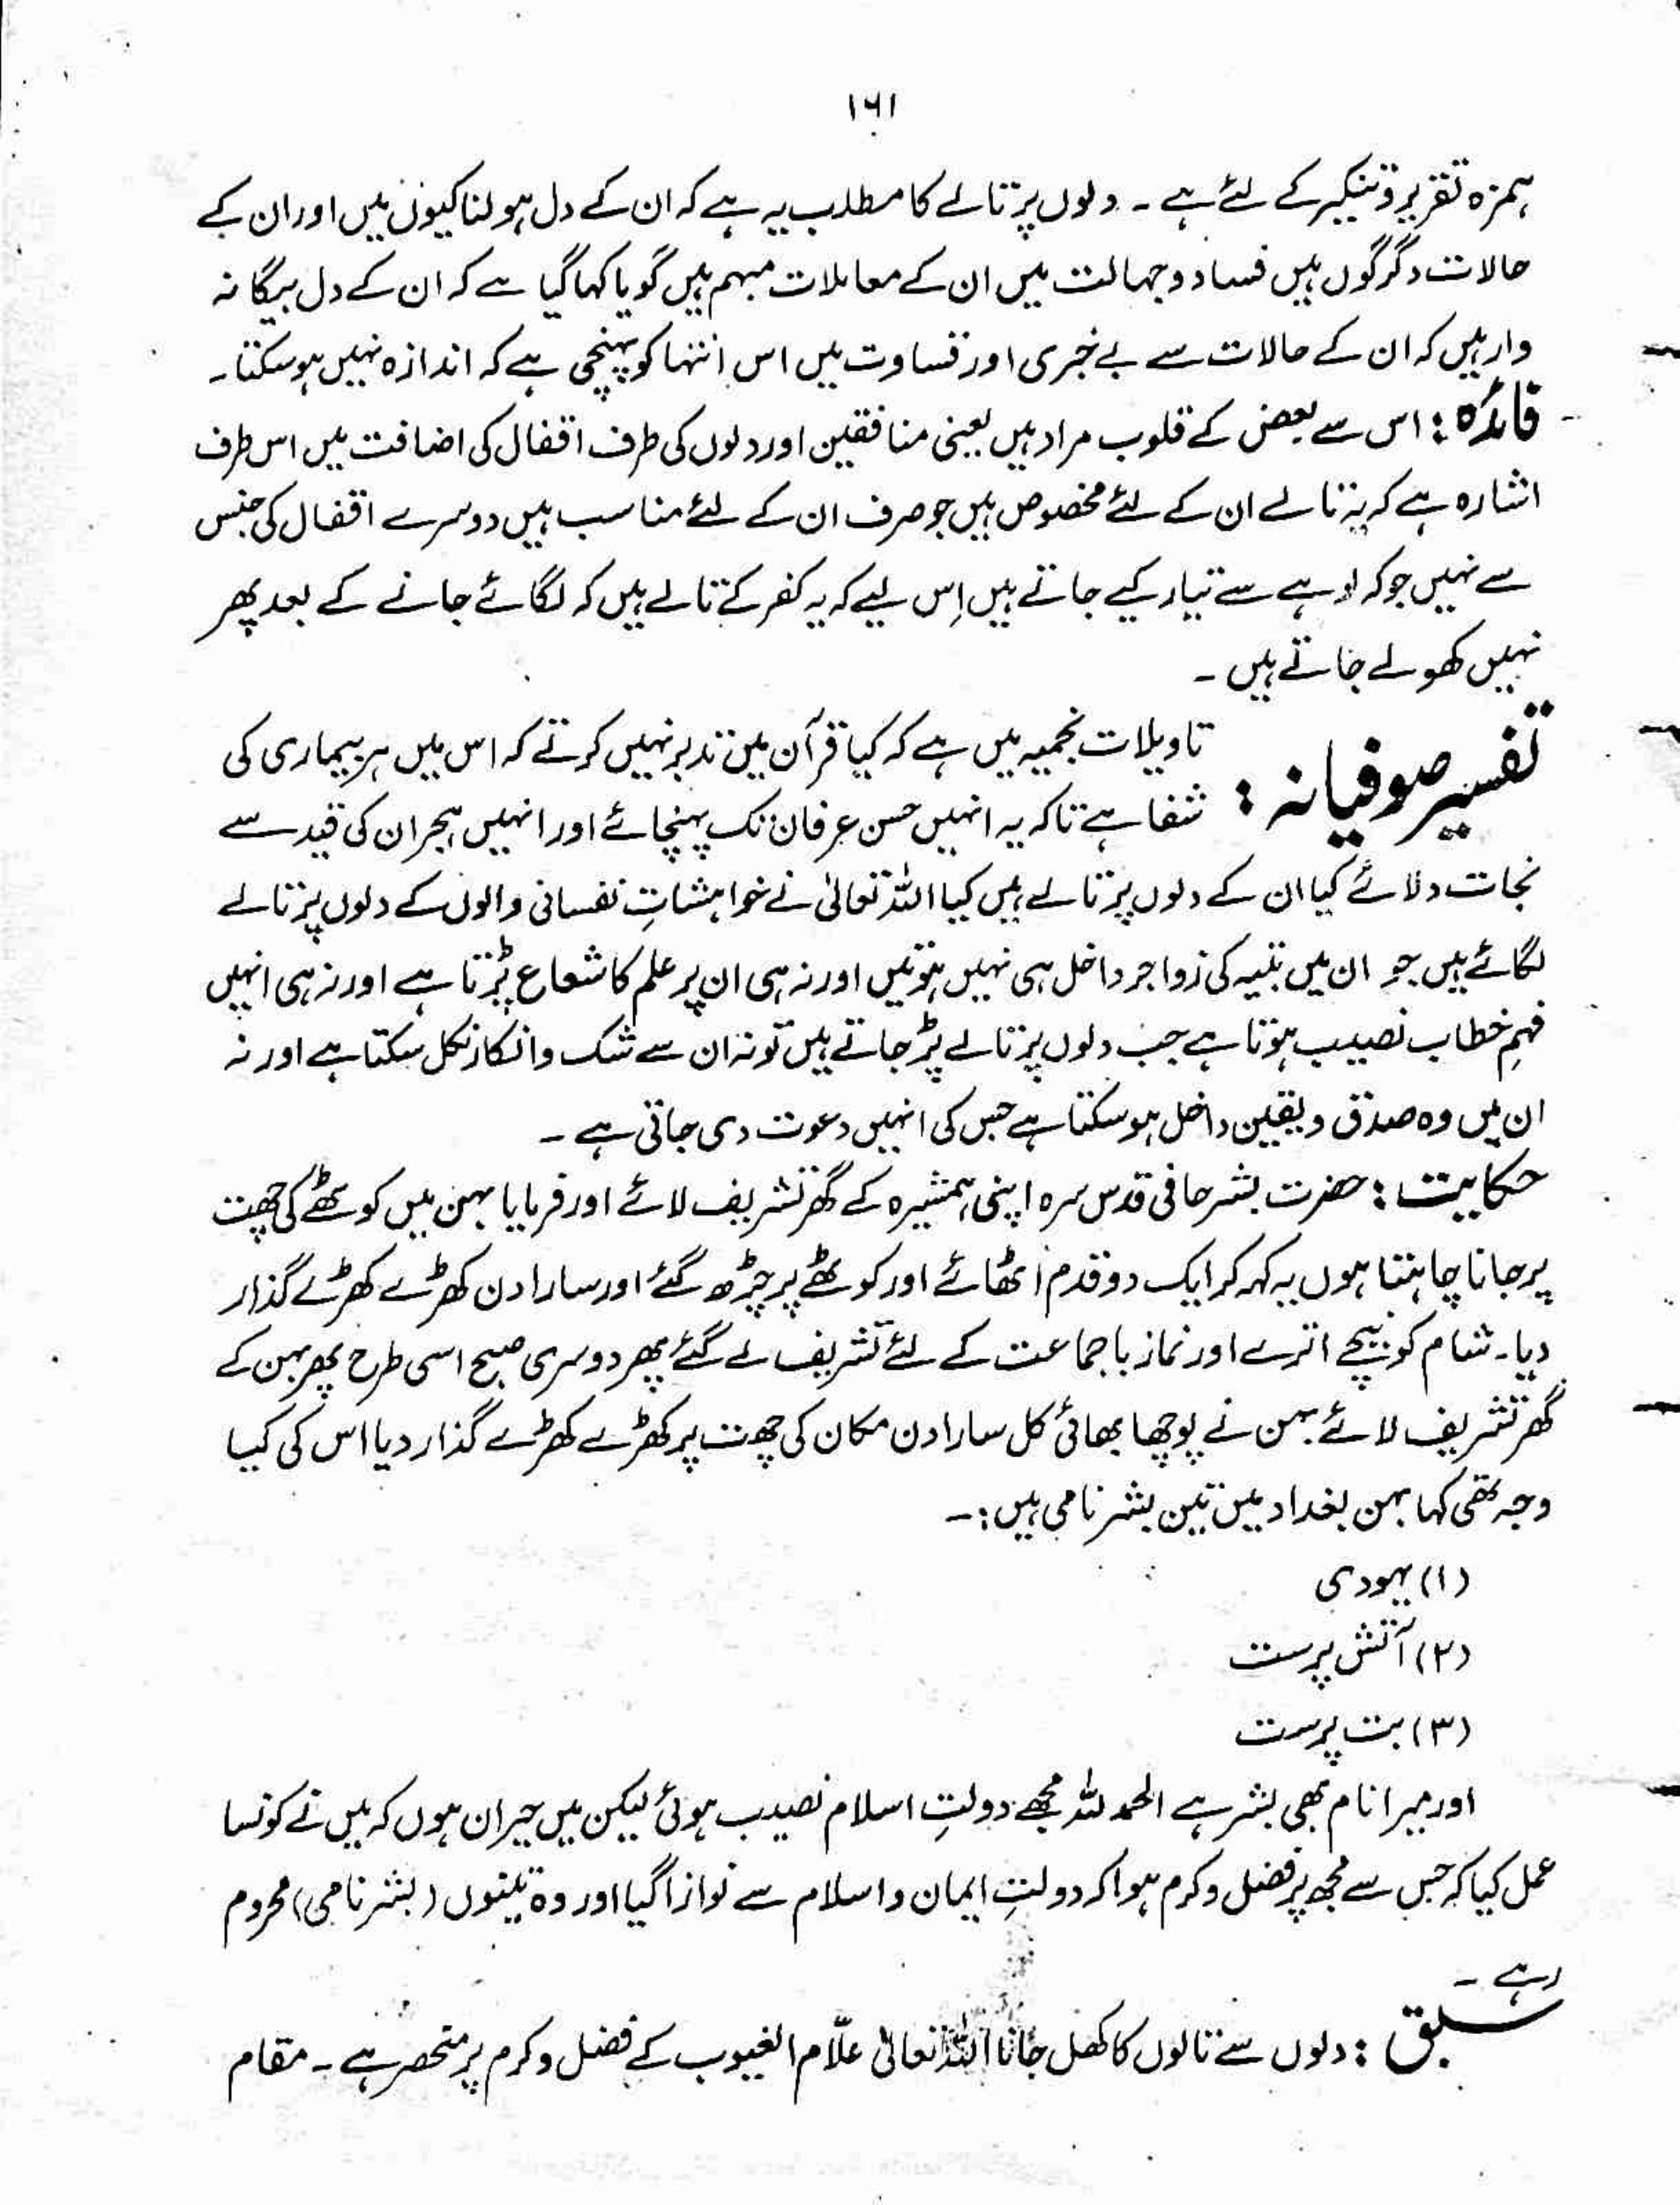 ۱۶۱
ہمزہ تقریر و تنکیر کے لئے ہے ۔ دلوں پر تالے کا مطلب یہ ہے کہ ان کے دل ہولناکیوں میں اور ان کے
حالات دگرگوں ہیں فساد و جہالت میں ان کے معاملات مبہم ہیں گویا کہا گیا ہے کہ ان کے دل بیگانہ
وار ہیں کہ ان کے حالات سے بے خبری اور قساوت میں اس انتہا کو پہنچی ہے کہ اندازہ نہیں ہو سکتا ۔
فائدہ : اس سے بعض کے قلوب مراد ہیں یعنی منافقین اور دلوں کی طرف اقفال کی اضافت میں اس طرف
اشارہ ہے کہ یہ تالے ان کے لئے مخصوص ہیں جو صرف ان کے لئے مناسب ہیں دوسرے اقفال کی جنس
سے نہیں جو کہ لوہے سے تیار کیے جاتے ہیں اِس لیے کہ یہ کفر کے تالے ہیں کہ لگائے جانے کے بعد پھر
نہیں کھولے جاتے ہیں ۔
تفسیر صوفیانہ : تاویلات نجمیہ میں ہے کہ کیا قرآن میں تدبر نہیں کرتے کہ اس میں ہر بیماری کی
شفا ہے تاکہ یہ انہیں حسن عرفان تک پہنچائے اور انہیں ہجران کی قید سے
نجات دلائے کیا ان کے دلوں پر تالے ہیں کیا اللہ تعالیٰ نے خواہشاتِ نفسانی والوں کے دلوں پر تالے
لگائے ہیں جو ان میں تنبیہ کی زواجر داخل ہی نہیں ہوتیں اور نہ ہی ان پر علم کا شعاع پڑتا ہے اور نہ ہی انہیں
فہمِ خطاب نصیب ہوتا ہے جب دلوں پر تالے پڑ جاتے ہیں تو نہ ان سے شک و انکار نکل سکتا ہے اور نہ
ان میں وہ صدق و یقین داخل ہو سکتا ہے جس کی انہیں دعوت دی جاتی ہے ۔
حکایت : حضرت بشر حافی قدس سرہ اپنی ہمشیرہ کے گھر تشریف لائے اور فرمایا بہن میں کوٹھے کی چھت
پر جانا چاہتا ہوں یہ کہہ کر ایک دو قدم اٹھائے اور کوٹھے پر چڑھ گئے اور سارا دن کھڑے کھڑے گذار
دیا ۔ شام کو نیچے اترے اور نماز باجماعت کے لئے تشریف لے گئے پھر دوسری صبح اسی طرح پھر بہن کے
گھر تشریف لائے بہن نے پوچھا بھائی کل سارا دن مکان کی چھت پر کھڑے کھڑے گذار دیا اس کی کیا
وجہ تھی کہا بہن بغداد میں تین بشر نامی ہیں :۔
(۱) یہودی
(۲) آتش پرست
(۳) بت پرست
اور میرا نام بھی بشر ہے الحمد للہ مجھے دولتِ اسلام نصیب ہوئی لیکن میں حیران ہوں کہ میں نے کونسا
عمل کیا کہ جس سے مجھ پر فضل و کرم ہوا کہ دولتِ ایمان و اسلام سے نوازا گیا اور وہ تینوں (بشر نامی) محروم
رہے ۔
سبق : دلوں سے تالوں کا کھل جانا اللہ تعالیٰ علّام الغیوب کے فضل و کرم پر منحصر ہے ۔ مقام